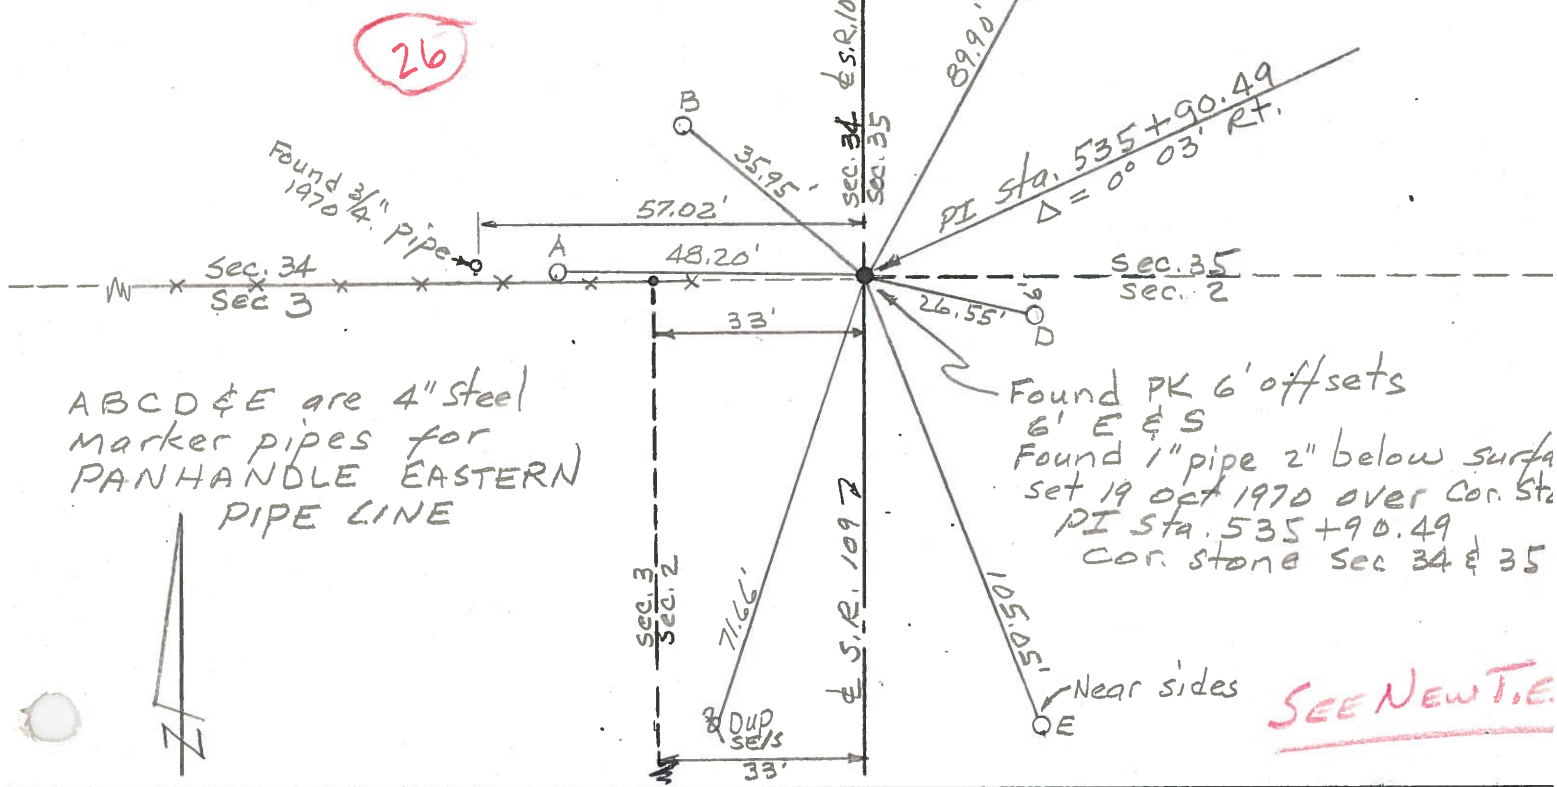 26
℄ S.R. 10
89.90'
B
sec. 34
sec. 35
35.95'
PI sta. 535+90.49
Δ = 0° 03' Rt.
Found 3/4"
1970 pipe
57.02'
A
48.20'
Sec. 34
Sec 3
sec. 35
sec. 2
6'
26.55'
D
33'
ABCD & E are 4" Steel
Marker pipes for
PANHANDLE EASTERN
PIPE LINE
Found PK 6' offsets
6' E & S
Found 1" pipe 2" below surfa
set 19 oct 1970 over Cor. Sto
PI Sta. 535+90.49
Cor. stone Sec 34 & 35
sec. 3
sec. 2
71.66'
℄ S.R. 109
105.05'
Near sides
E
SEE NEW T.E.
DUP
SE/S
33'
N